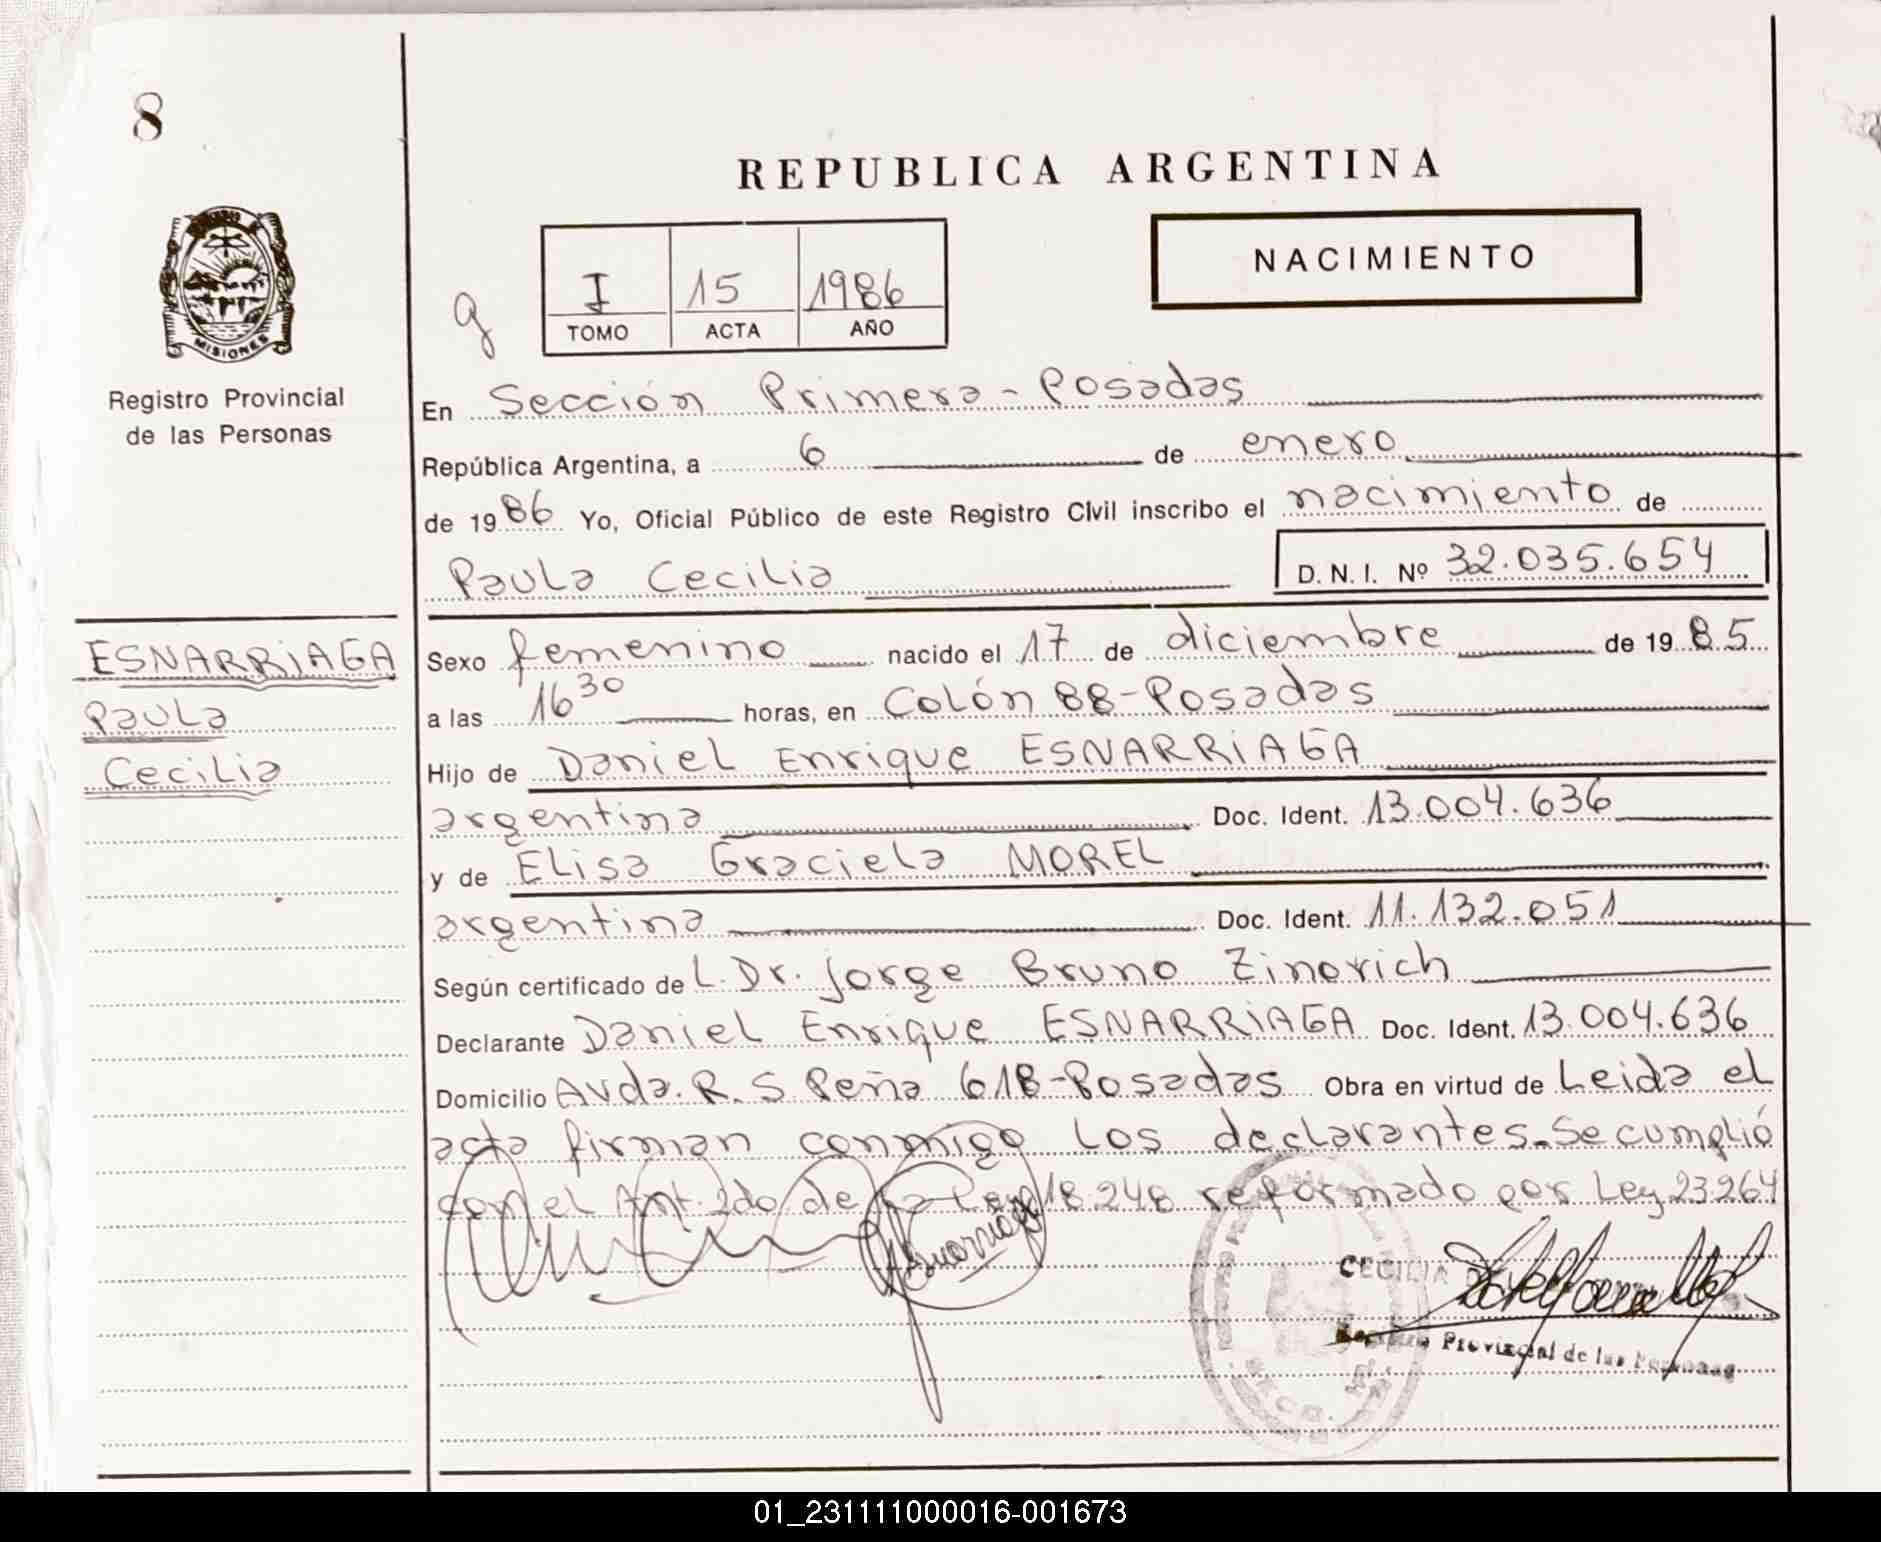 8
REPUBLICA ARGENTINA
NACIMIENTO
I 15 1986
TOMO ACTA AÑO
g
MISIONES
Registro Provincial
de las Personas
En Sección Primera - Posadas
República Argentina, a 6 de enero
de 19 86 Yo, Oficial Público de este Registro Civil inscribo el nacimiento de
Paula Cecilia D. N. I. Nº 32.035.654
ESNARRIAGA
Paula
Cecilia
Sexo femenino nacido el 17 de diciembre de 19 85
a las 16 30 horas, en Colón 88-Posadas
Hijo de Daniel Enrique ESNARRIAGA
argentina Doc. Ident. 13.004.636
y de Elisa Graciela MOREL
argentina Doc. Ident. 11.132.051
Según certificado de L. Dr. Jorge Bruno Zinovich
Declarante Daniel Enrique ESNARRIAGA Doc. Ident. 13.004.636
Domicilio Avda. R. S. Peña 618-Posadas Obra en virtud de Leida el
acta firman conmigo los declarantes. Se cumplió
con el Art. 2do de la Ley 18.248 reformado por Ley 23.264
CECILIA
Registro Provincial de las Personas
01_231111000016-001673